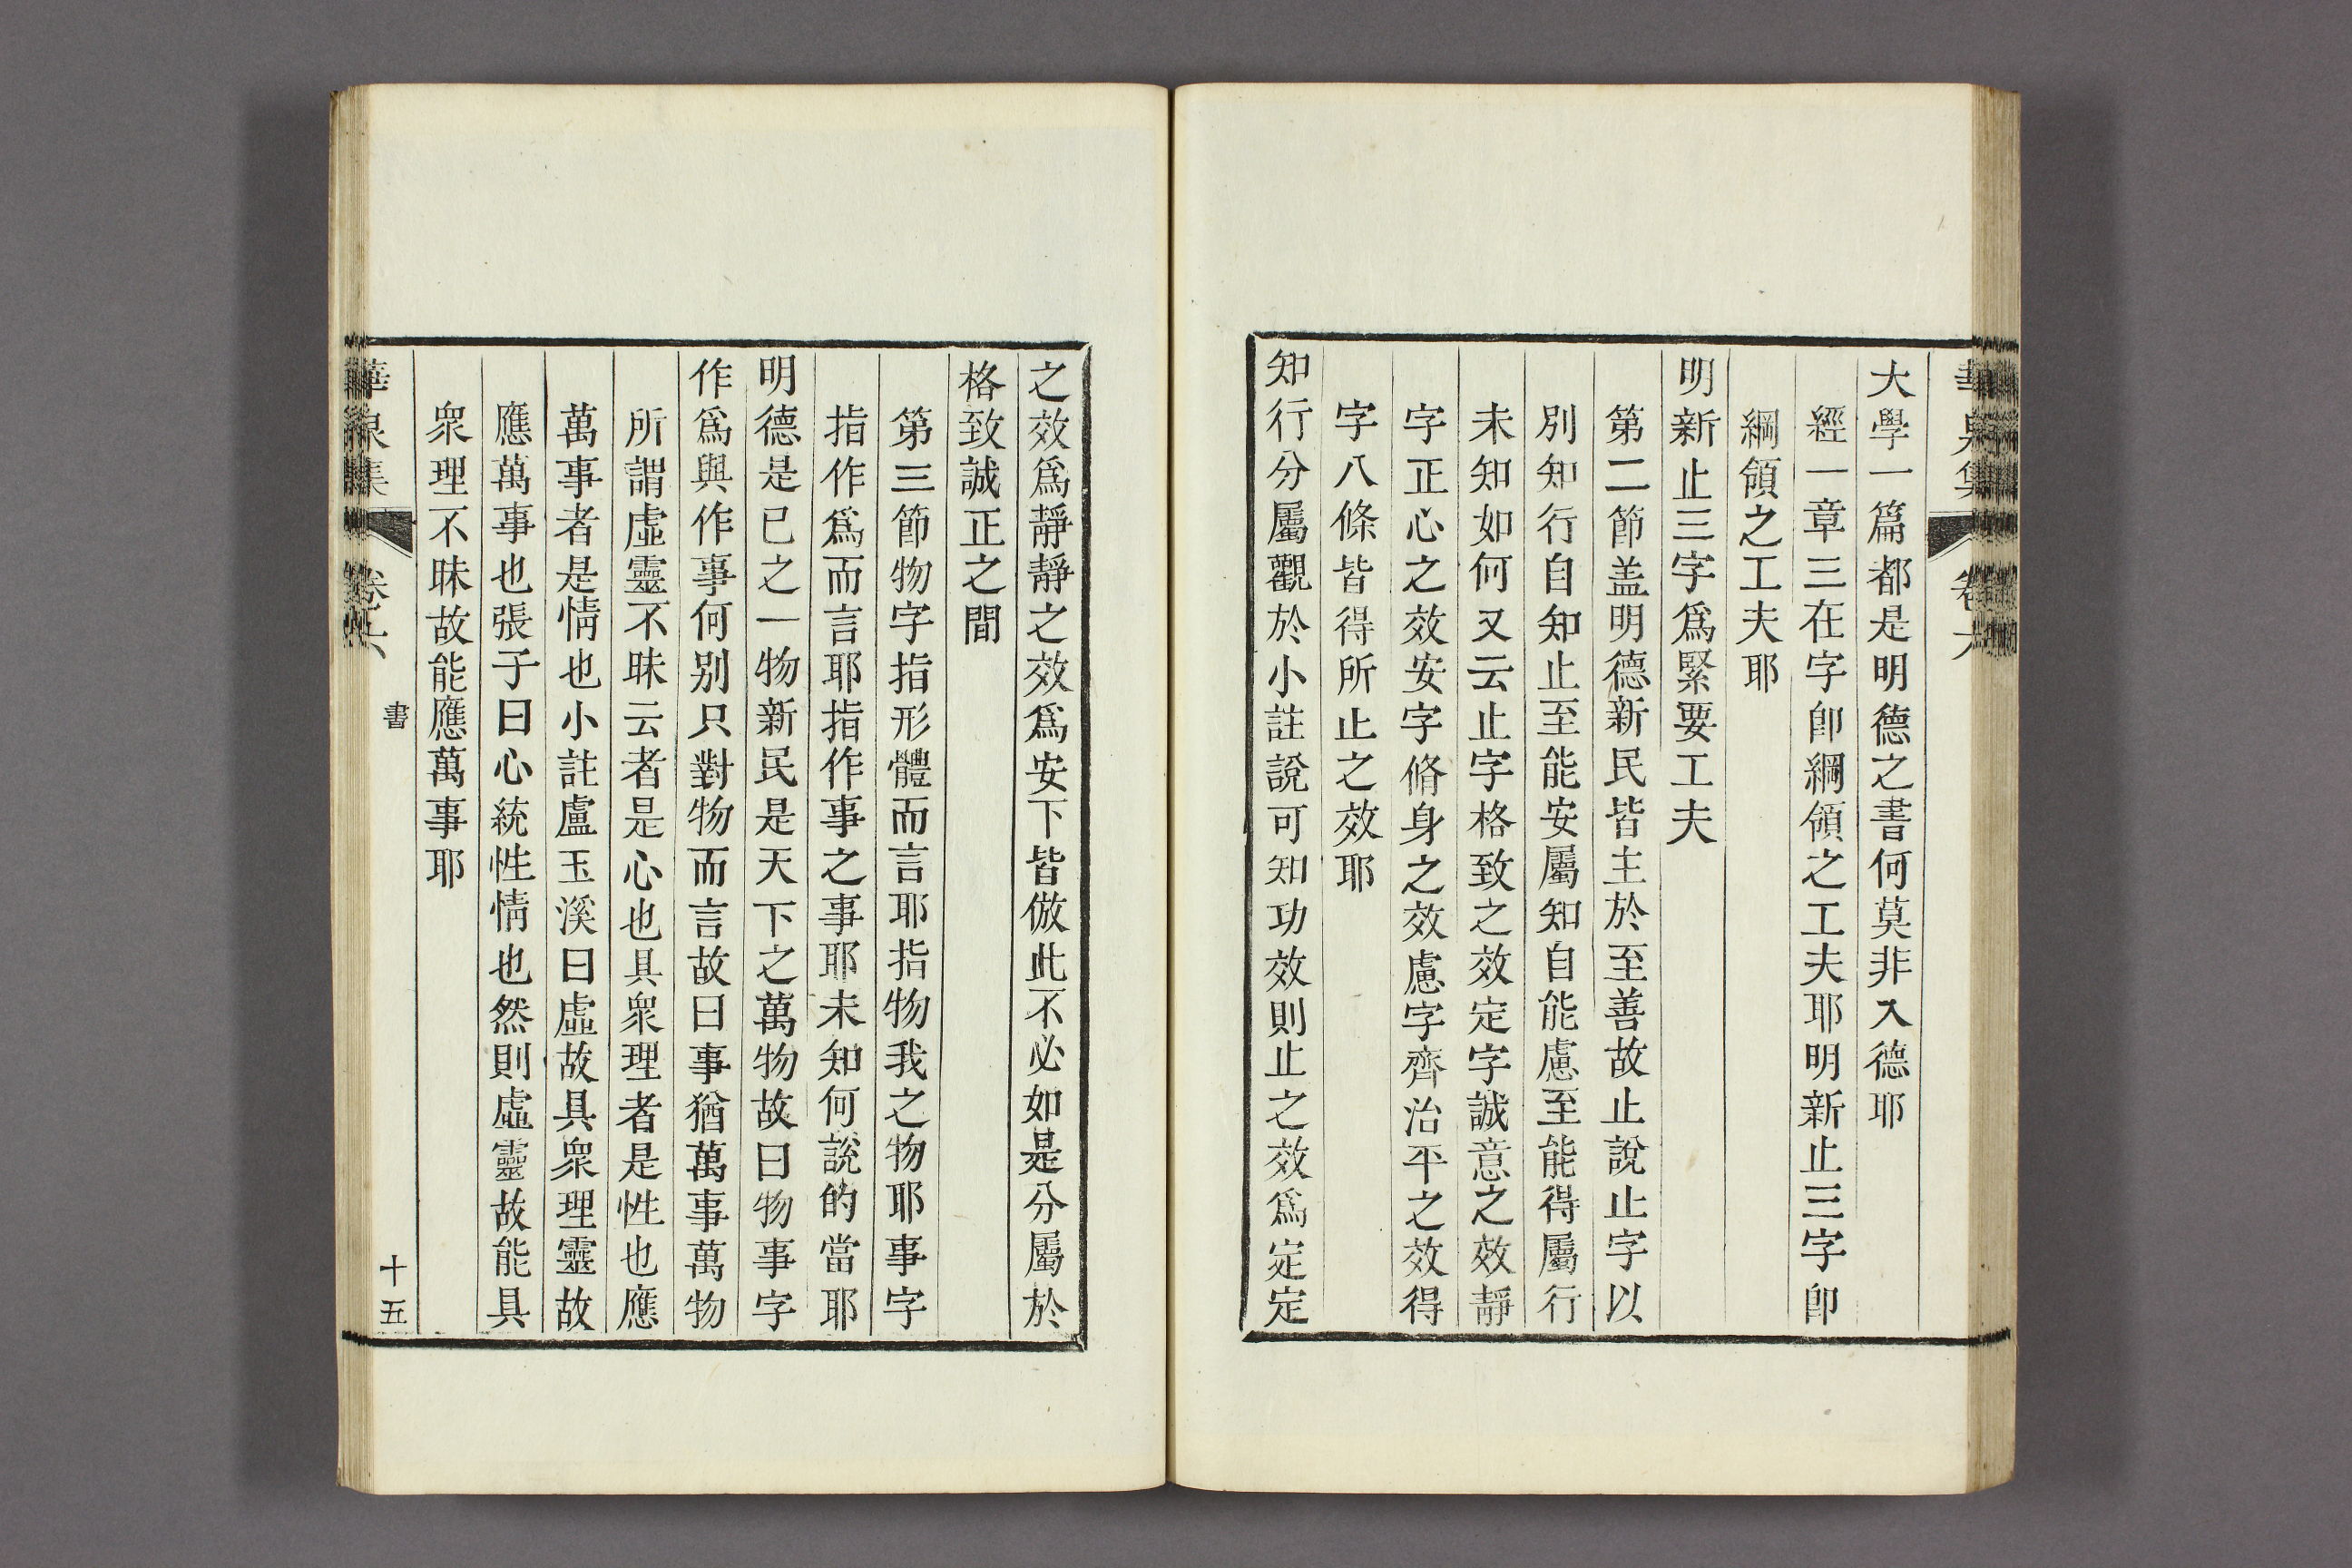 大學一篇都是明德之書何莫非入德耶
經一章三在字卽綱領之工夫耶明新止三字卽
綱領之工夫耶
明新止三字爲緊要工夫
第二節盖明德新民皆主於至善故止說止字以
別知行自知止至能安屬知自能慮至能得屬行
未知如何又云止字格致之效定字誠意之效靜
字正心之效安字脩身之效慮字齊治平之效得
字八條皆得所止之效耶
知行分屬觀於小註說可知功效則止之效爲定定
之效爲靜靜之效爲安下皆倣此不必如是分屬於
格致誠正之間
第三節物字指形體而言耶指物我之物耶事字
指作爲而言耶指作事之事耶未知何說的當耶
明德是已之一物新民是天下之萬物故曰物事字
作爲與作事何别只對物而言故曰事猶萬事萬物
所謂虛靈不昧云者是心也具衆理者是性也應
萬事者是情也小註盧玉溪曰虛故具衆理靈故
應萬事也張子曰心統性情也然則虛靈故能具
衆理不昧故能應萬事耶
華泉集 卷六 書 十五